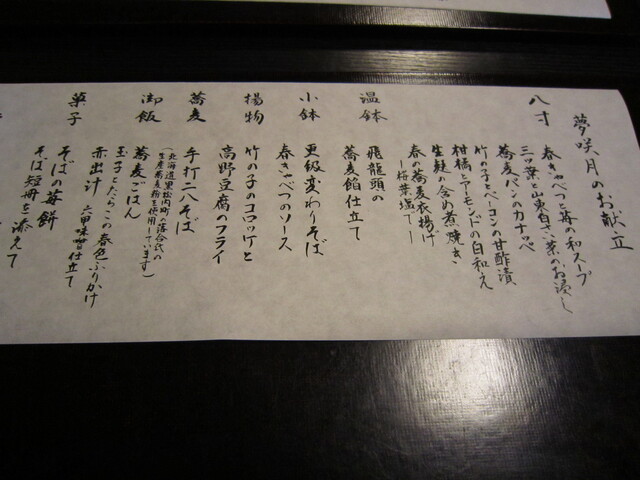 夢咲月のお献立
八寸
春きゃべつと苺の和スープ
三つ葉と山東白さい菜のお浸し
蕎麦パンのカナッペ
竹の子とベーコンの甘酢漬
柑橘とアーモンドの白和え
生麩の含め煮焼き
春の蕎麦衣揚げ
ー桜葉塩でー
温鉢
飛龍頭の
蕎麦餡仕立て
小鉢
更級変わりそば
春きゃべつのソース
揚物
竹の子のコロッケと
高野豆腐のフライ
蕎麦
手打二八そば
(北海道黒松内町の落合氏の
生産蕎麦粉を使用しています)
御飯
蕎麦ごはん
玉子とたらこの春色ふりかけ
赤出汁 六甲味噌仕立て
菓子
そばの苺餅
そば短冊を添えて